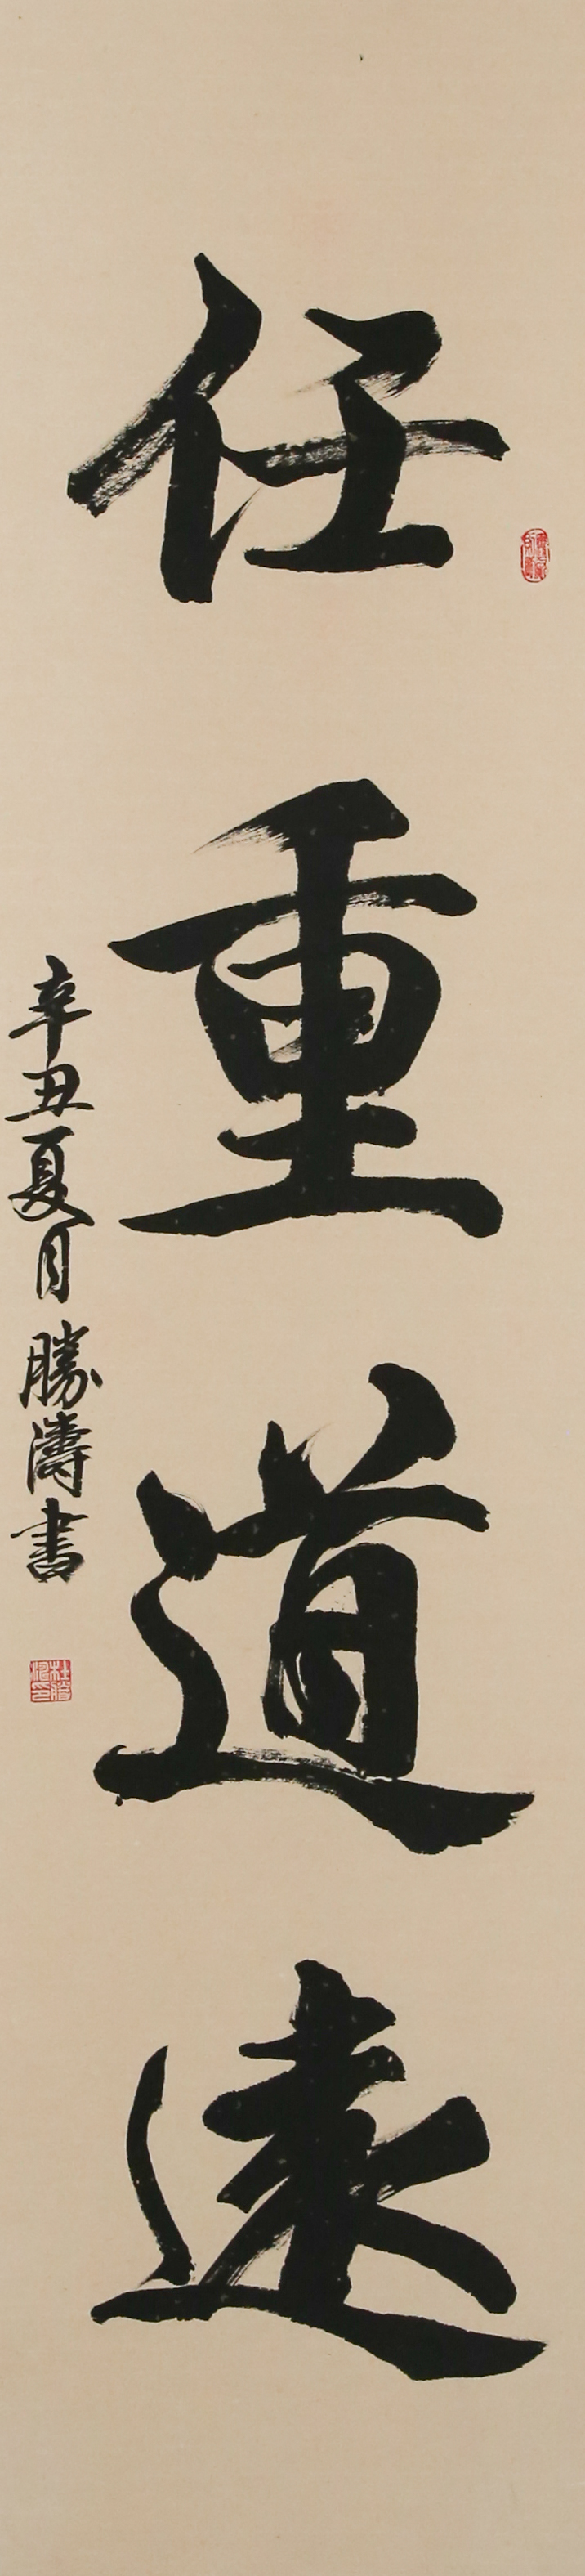 任重道遠
辛丑夏月勝濤書